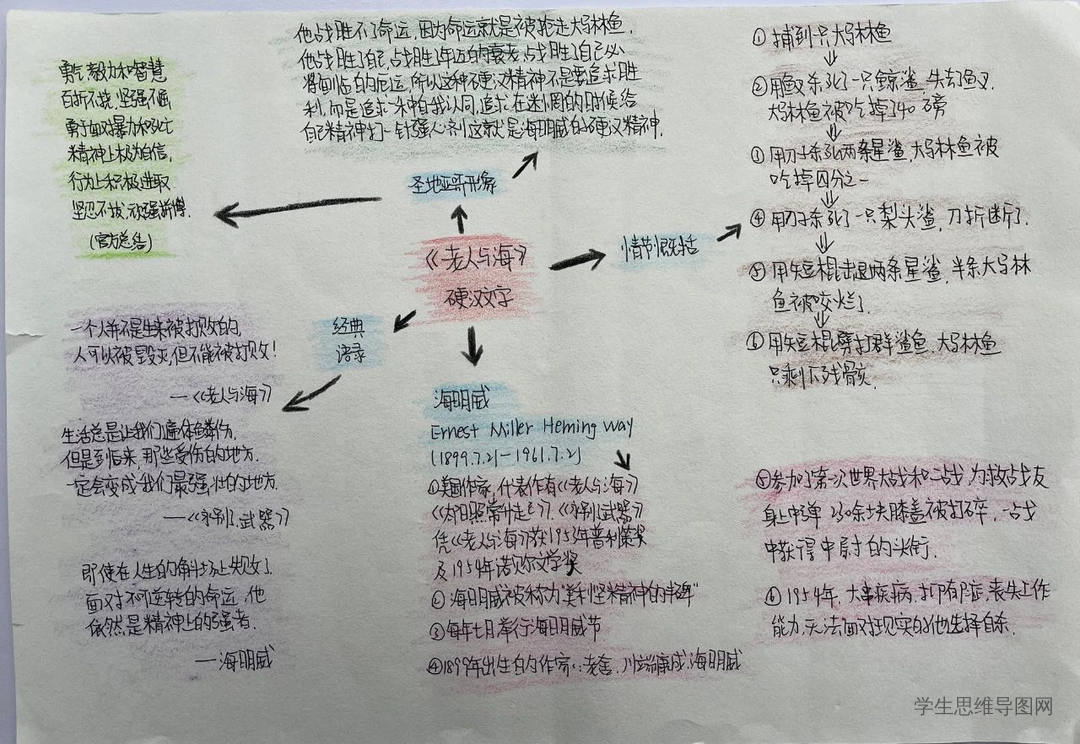 《老人与海》
硬汉文学
圣地亚哥形象
他战胜不了命运,因为命运就是被抢走大马林鱼,
他战胜了自己,占胜了年迈的衰老,占胜了自己必
将面临的厄运,所以这种硬汉精神不是要追求胜
利,而是追求一种自我认同,追求在迷惘的时候给
自己精神打一针强心剂这就是海明威的硬汉精神.
勇气毅力和智慧
百折不挠,坚强不屈
勇于面对暴力和死亡
精神上极为自信,
行为上积极进取
坚忍不拔,顽强拼搏.
(官方总结)
情节概括
① 捕到只大马林鱼
②用鱼叉杀死了一只鲭鲨,失去鱼叉,
大马林鱼被吃掉了40磅
用刀子杀死两条星鲨,大马林鱼被
吃掉四分之一
④用刀子杀死了一只犁头鲨,刀折断了.
用短棍击退两条星鲨,半条大马林
鱼被咬烂了
用短棍 打群鲨鱼,大马林鱼
只剩下残骸.
经典
语录
一个人并不是生来被打败的,
人可以被毁灭,但不能被打败!
—《老人与海》
生活总是让我们遍体鳞伤,
但是到后来,那些受伤的地方.
一定会变成我们最强壮的地方.
—《永别了,武器》
即使在人生的角斗场上失败了.
面对不可逆转的命运,他
依然是精神上的强者.
—海明威
海明威
Ernest Miller Heming way
(1899.7.21—1961.7.2)
①美国作家,代表作有《老人与海》
《太阳照常升起》.《永别了,武器》
凭《老人与海》获1953年普利策奖
及1954年诺贝尔文学奖
② 海明威被称为"美利坚精神的丰碑"
③每年七月举行海明威节
④1899年出生的作家:老舍,川端康成,海明威
参加了第一次世界大战和二战,为救战友
身上中弹230余块膝盖被打碎,一战
中获得中尉的头衔.
⑥1954年,大事疾病,抑郁症,丧失工作
能力,无法面对现实的他选择自杀.
学生思维导图网